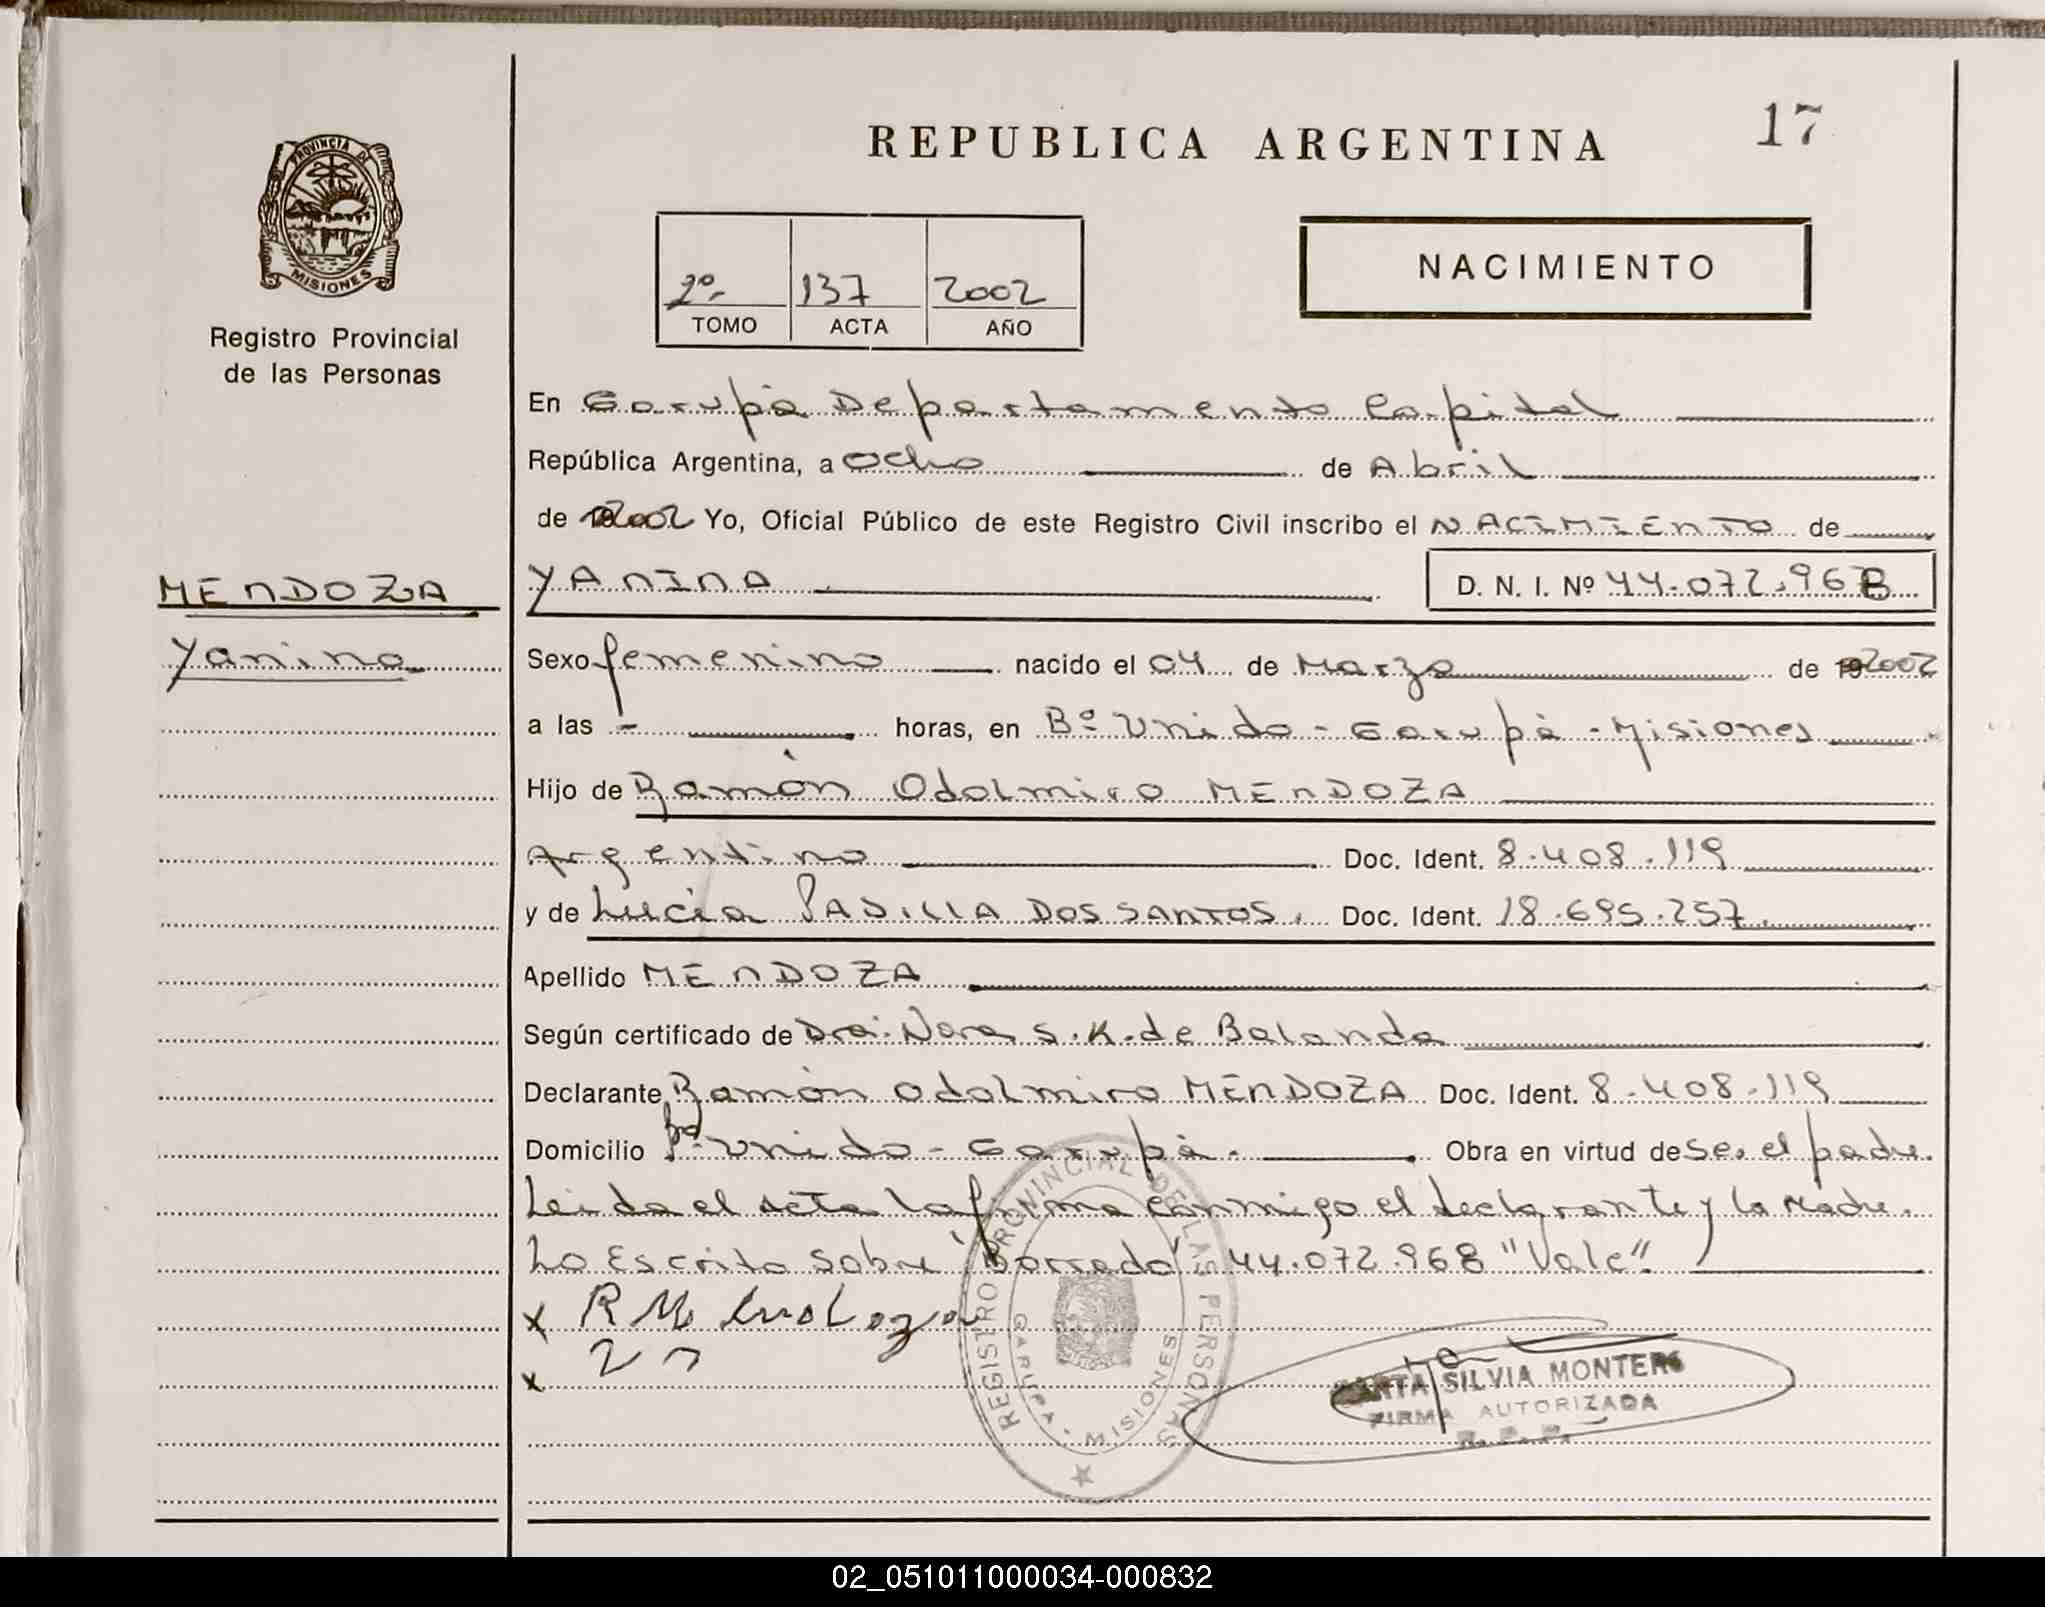 17
REPUBLICA ARGENTINA
PROVINCIA DE
MISIONES
Registro Provincial
de las Personas
2º- 137 2002
TOMO ACTA AÑO
NACIMIENTO
En Garupá Departamento Capital
República Argentina, a Ocho de Abril
de 2002 Yo, Oficial Público de este Registro Civil inscribo el NACIMIENTO de
MENDOZA
YANINA D. N. I. Nº 44.072.968
Yanina
Sexo femenino nacido el 04 de Marzo de 2002
a las - horas, en Bº Unido - Garupá - Misiones
Hijo de Ramón Odolmiro MENDOZA
Argentino Doc. Ident. 8.408.119
y de Lucia PADILLA DOS SANTOS. Doc. Ident. 18.695.257.
Apellido MENDOZA
Según certificado de Dra. Nora S. K. de Balanda
Declarante Ramón Odolmiro MENDOZA Doc. Ident. 8.408.119
Domicilio Bº Unido - Garupá. Obra en virtud de ser el padre.
Leida el acta la firma conmigo el declarante y la Madre.
Lo Escrito sobre "Borrado" 44.072.968 "Vale".
x R M
x
REGISTRO PROVINCIAL DE LAS PERSONAS
GARUPA - MISIONES
SILVIA MONTERO
FIRMA AUTORIZADA
R. P. P.
02_051011000034-000832